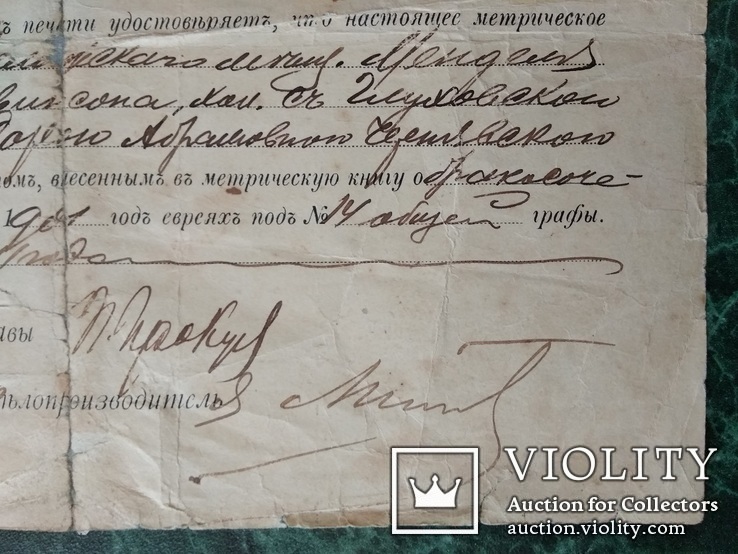 ъ печати удостовѣряетъ, что настоящее метрическое
скаго мѣщ. Менделя
сона, хол. съ Глуховской
Абрамовной
омъ, внесеннымъ въ метрическую книгу о бракосоче-
1901 годъ евреяхъ под № 14 общей графы.
года
авы
ѣлопроизводитель
VIOLITY
Auction for Collectors
auction.violity.com